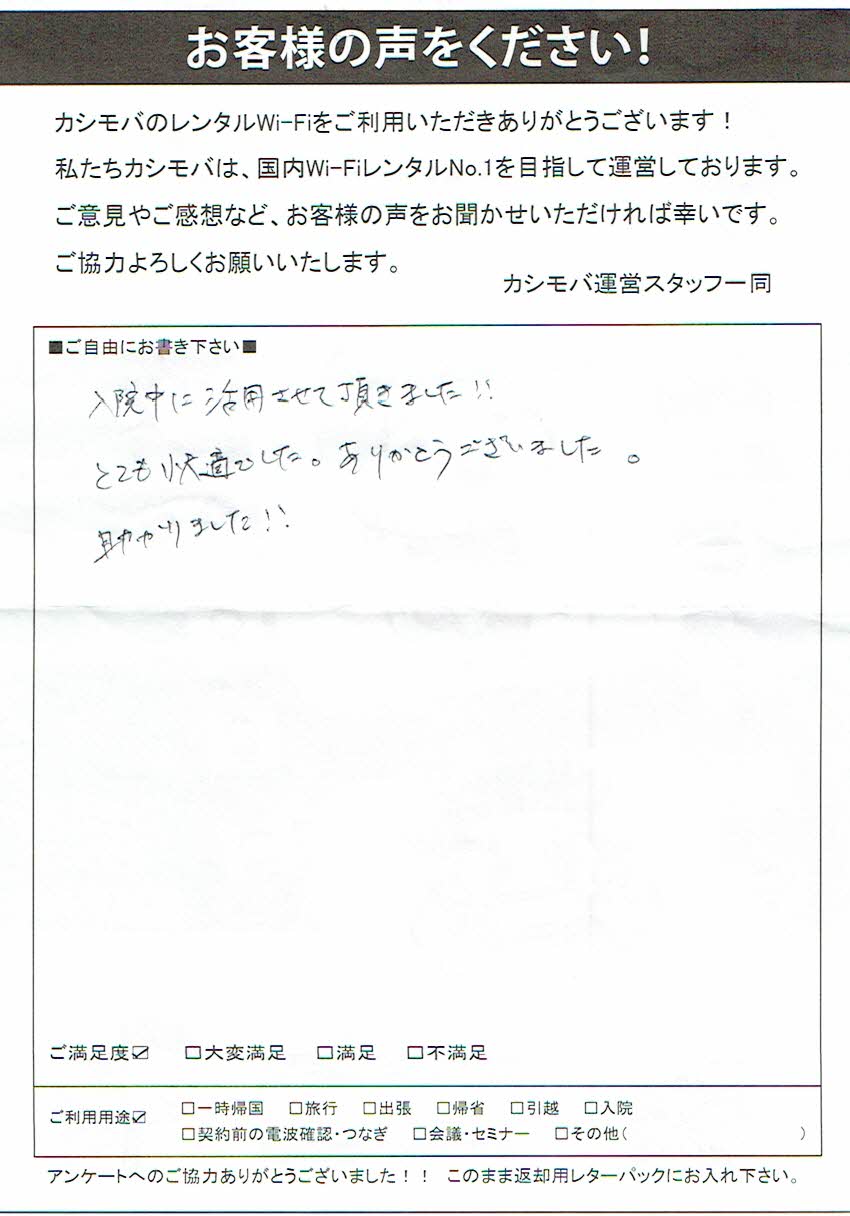 お客様の声をください!
カシモバのレンタルWi-Fiをご利用いただきありがとうございます！
私たちカシモバは、国内Wi-FiレンタルNo.1を目指して運営しております。
ご意見やご感想など、お客様の声をお聞かせいただければ幸いです。
ご協力よろしくお願いいたします。
カシモバ運営スタッフ一同
■ご自由にお書き下さい■
入院中に活用させて頂きました!!
とても快適でした。ありがとうございました。
助かりました!!
ご満足度☑ □大変満足 □満足 □不満足
ご利用用途☑ □一時帰国 □旅行 □出張 □帰省 □引越 □入院
□契約前の電波確認・つなぎ □会議・セミナー □その他( )
アンケートへのご協力ありがとうございました！！ このまま返却用レターパックにお入れ下さい。